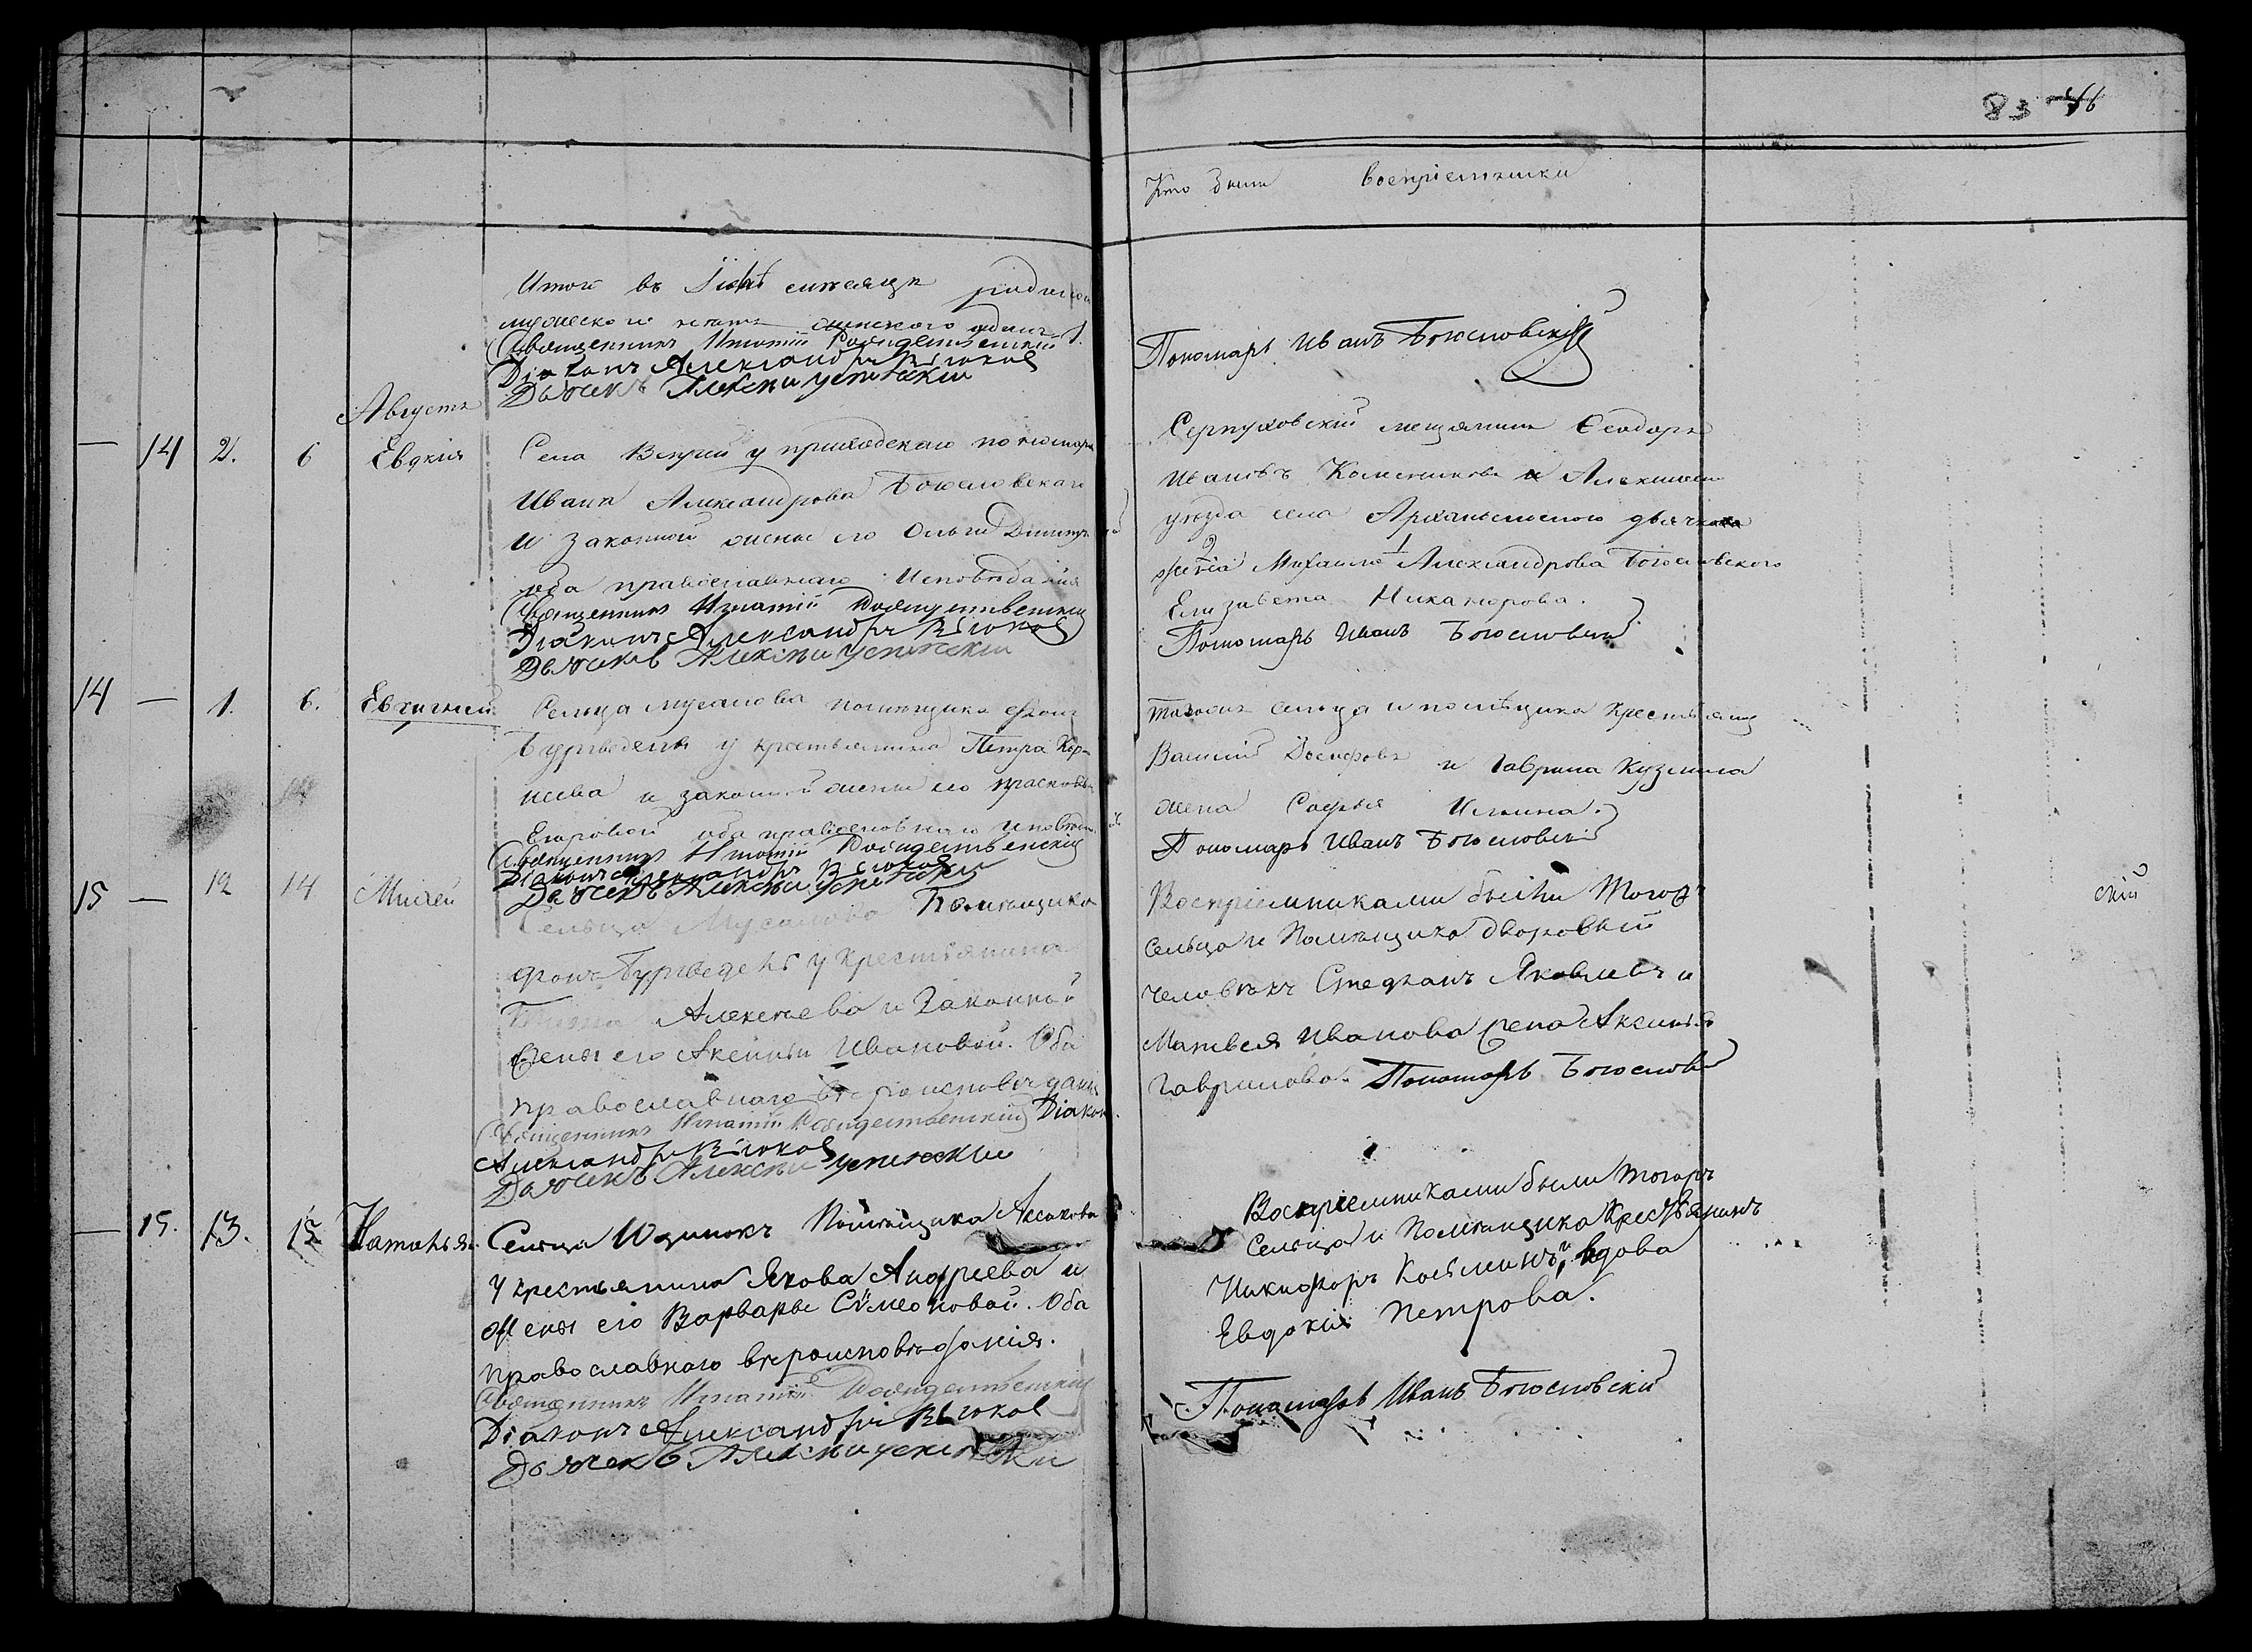 83 46
Кто были воспріемники
Итого въ Іюлѣ мѣсяцѣ родилось
мужеского женского одинъ 1.
Священникъ Игнатій Рождественскій
Діаконъ Александръ
Дьячекъ Алексѣй Успенскій
Пономарь Иванъ Богословскій
Августъ
— 14 2. 6 Евдкія
Села у приходскаго пономаря
Ивана Александрова Богословскаго
и законной жены его Ольги Димитр
оба православнаго исповѣданія
Священникъ Игнатій Рождественскій
Діаконъ Александръ
Дьячекъ Алексѣй Успенскій
Серпуховскій мещанинъ Ѳеодоръ
Ивановъ и Алексинск
уѣзда села Архангельского дьячка
жена Михаила Александрова Богословского
Елизавета Никанорова.
Пономарь Иванъ Богословскій
14 — 1. 6. Евхигней
Сельца Мусалова помѣщика фонъ
Бургведель у крестьянина Петра Кор-
и законной жены его Прасковьи
Егоровой оба православного исповѣд
Священникъ Игнатій Рождественскій
Діаконъ Александръ
Дьячекъ Алексѣй Успенскій
тогожъ сельца и помѣщика крестьянин
Василій Іосифовъ и Гаврила Кузмина
жена Софья Ильина.
Пономарь Иванъ Богословскій
15 — 12 14 Михей
Сельца Мусалова Помѣщика
фонъ Бургведель у Крестьянина
Алексѣева и Законной
жены его Аксиньи Ивановой. Оба
православнаго вѣроисповѣданія
Священникъ Игнатій Рождественскій Діаконъ
Александръ
Дьячекъ Алексѣй Успенскій
Воспріемниками были Тогожъ
сельца и Помѣщика дворовый
человѣкъ Стефанъ Яковлевъ и
Матвея Иванова жена Аксинья
Гаврилова. Пономарь Богослов
скій
— 15. 13. 15 Наталья.
Сельца Юдинокъ Помѣщика Аксакова
у крестьянина Якова Андреева и
жены его Варвары Сѵмеоновой. Оба
православнаго вѣроисповѣданія.
Священникъ Игнатій Рождественскій
Діаконъ Александръ
Дьячекъ Алексѣй Успенскій
Воспріемниками были тогожъ
Сельца и Помѣщика Крестьянинъ
Никифоръ Козьминъ, и вдова
Евдокія Петрова.
Пономарь Иванъ Богословскій